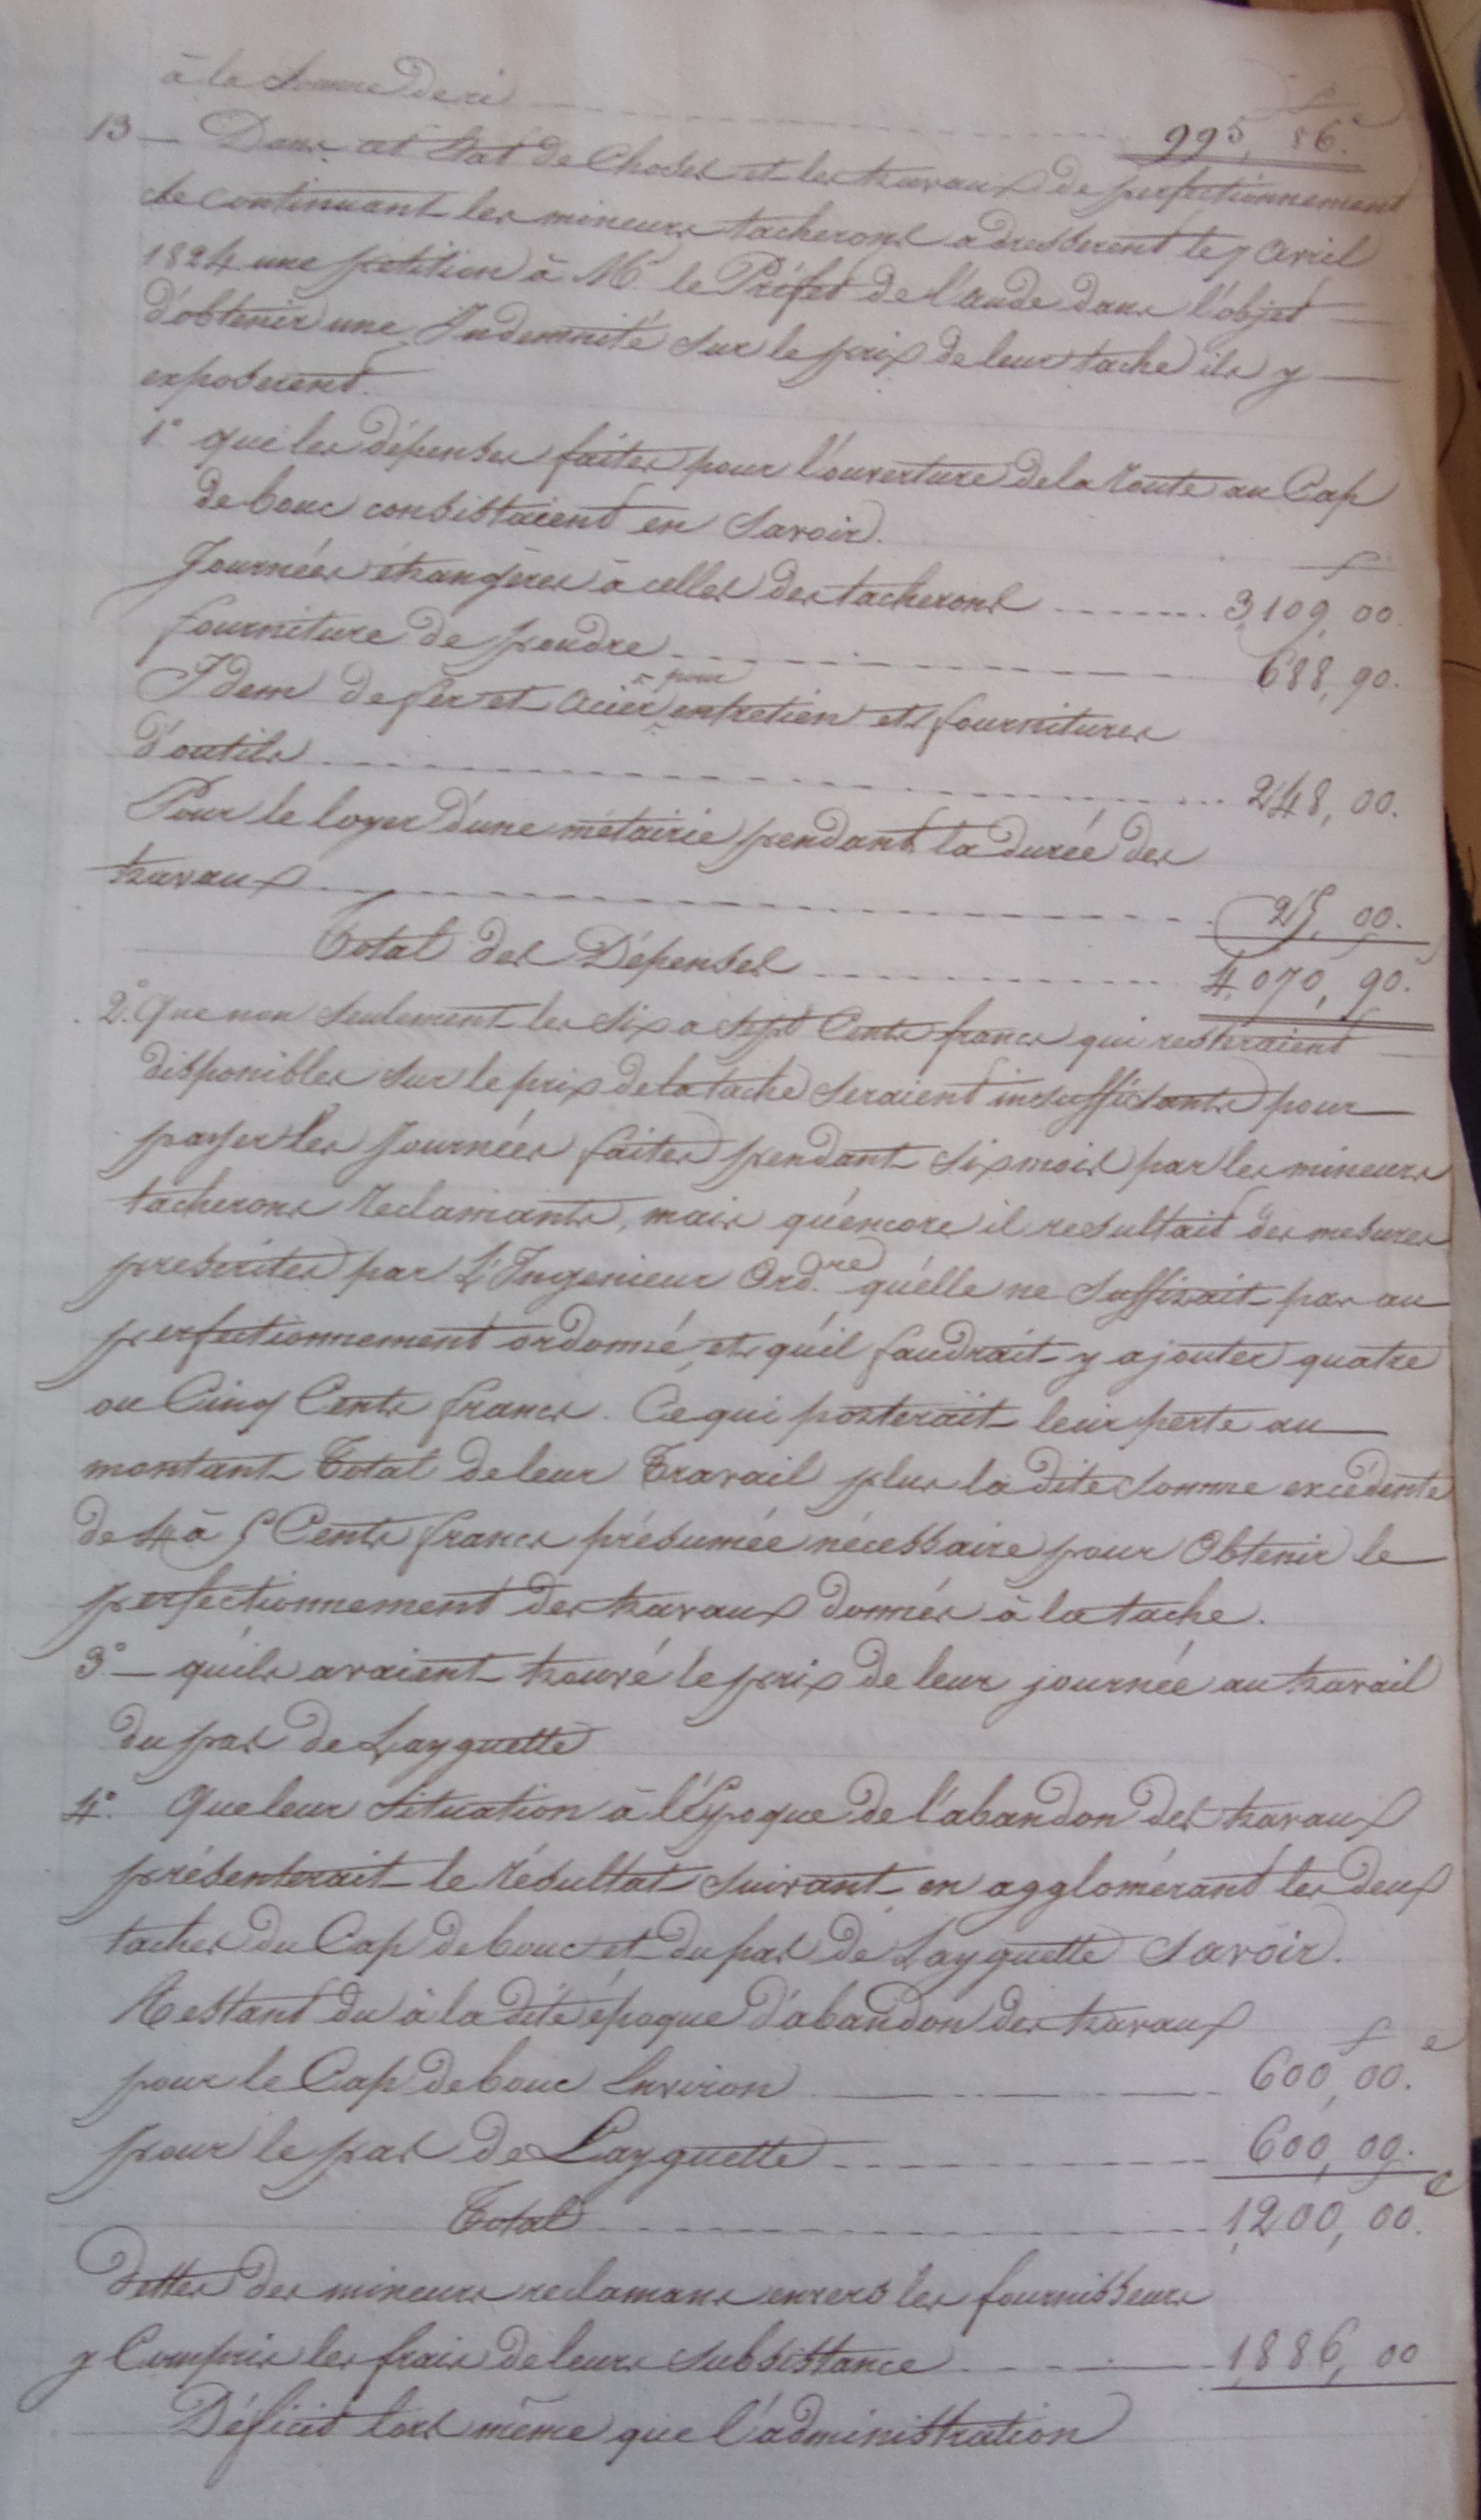 à la somme de ci 995,86.
13 — Dans cet état de choses et les travaux de perfectionnement
se continuant les mineurs tacherons adresserent le 7 avril
1824 une pétition à Mr. le Préfet de l'aude dans l'objet
d'obtenir une Indemnité sur le prix de leur tache ils y
exposerent.
1° que les dépenses faites pour l'ouverture de la route au Cap
de bouc consistaient en Savoir.
f
Journées étrangères à celles des tacherons 3,109,00.
fourniture de poudre 688,90.
Idem de fer et acier pour entretien et fournitures
d'outils 248,00.
Pour le loyer d'une métairie pendant la durée des
travaux 25,00.
Total des Dépenses 4,070,90.
2° Que non seulement les six a sept Cents francs qui resteraient
disponibles sur le prix de la tache seraient insuffisants pour
payer les Journées faites pendant six mois par les mineurs
tacherons reclamants, mais qu'encore il resultait des mesures
prescrites par L'Ingenieur Ord.re qu'elle ne suffisait pas au
perfectionnement ordonné, et qu'il faudrait y ajouter quatre
ou Cinq Cents francs. Ce qui porterait leur perte au
montant Total de leur Travail plus la dite somme excédente
de 4 à 5 Cents francs présumée nécessaire pour Obtenir le
perfectionnement des travaux donnés à la tache.
3° — qu'ils avaient trouvé le prix de leur journée au travail
du pas de Layguette
4° Que leur situation à l'Epoque de l'abandon des travaux
présenterait le résultat suivant en agglomérant les deux
taches du Cap de bouc et du pas de Layguette Savoir.
Restant du à la dite époque d'abandon des travaux
f c
pour le Cap de bouc Environ 600,00.
pour le pas de Layguette 600,00.
Total 1,200,00.
dettes des mineurs reclamans envers les fournisseurs
y Compris les frais de leurs subsistance 1,886,00
Déficit lors même que l'administration